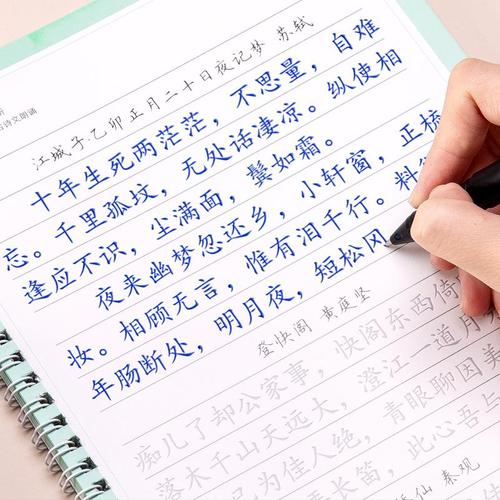 诗文朗诵
江城子·乙卯正月二十日夜记梦 苏轼
十年生死两茫茫，不思量，自难
忘。千里孤坟，无处话凄凉。纵使相
逢应不识，尘满面，鬓如霜。
夜来幽梦忽还乡，小轩窗，正梳
妆。相顾无言，惟有泪千行。料
年肠断处，明月夜，短松冈
登快阁 黄庭坚
痴儿了却公家事，快阁东西倚
落木千山天远大，澄江一道月
为佳人绝，青眼聊因美
长笛，此心吾与
仙 秦观